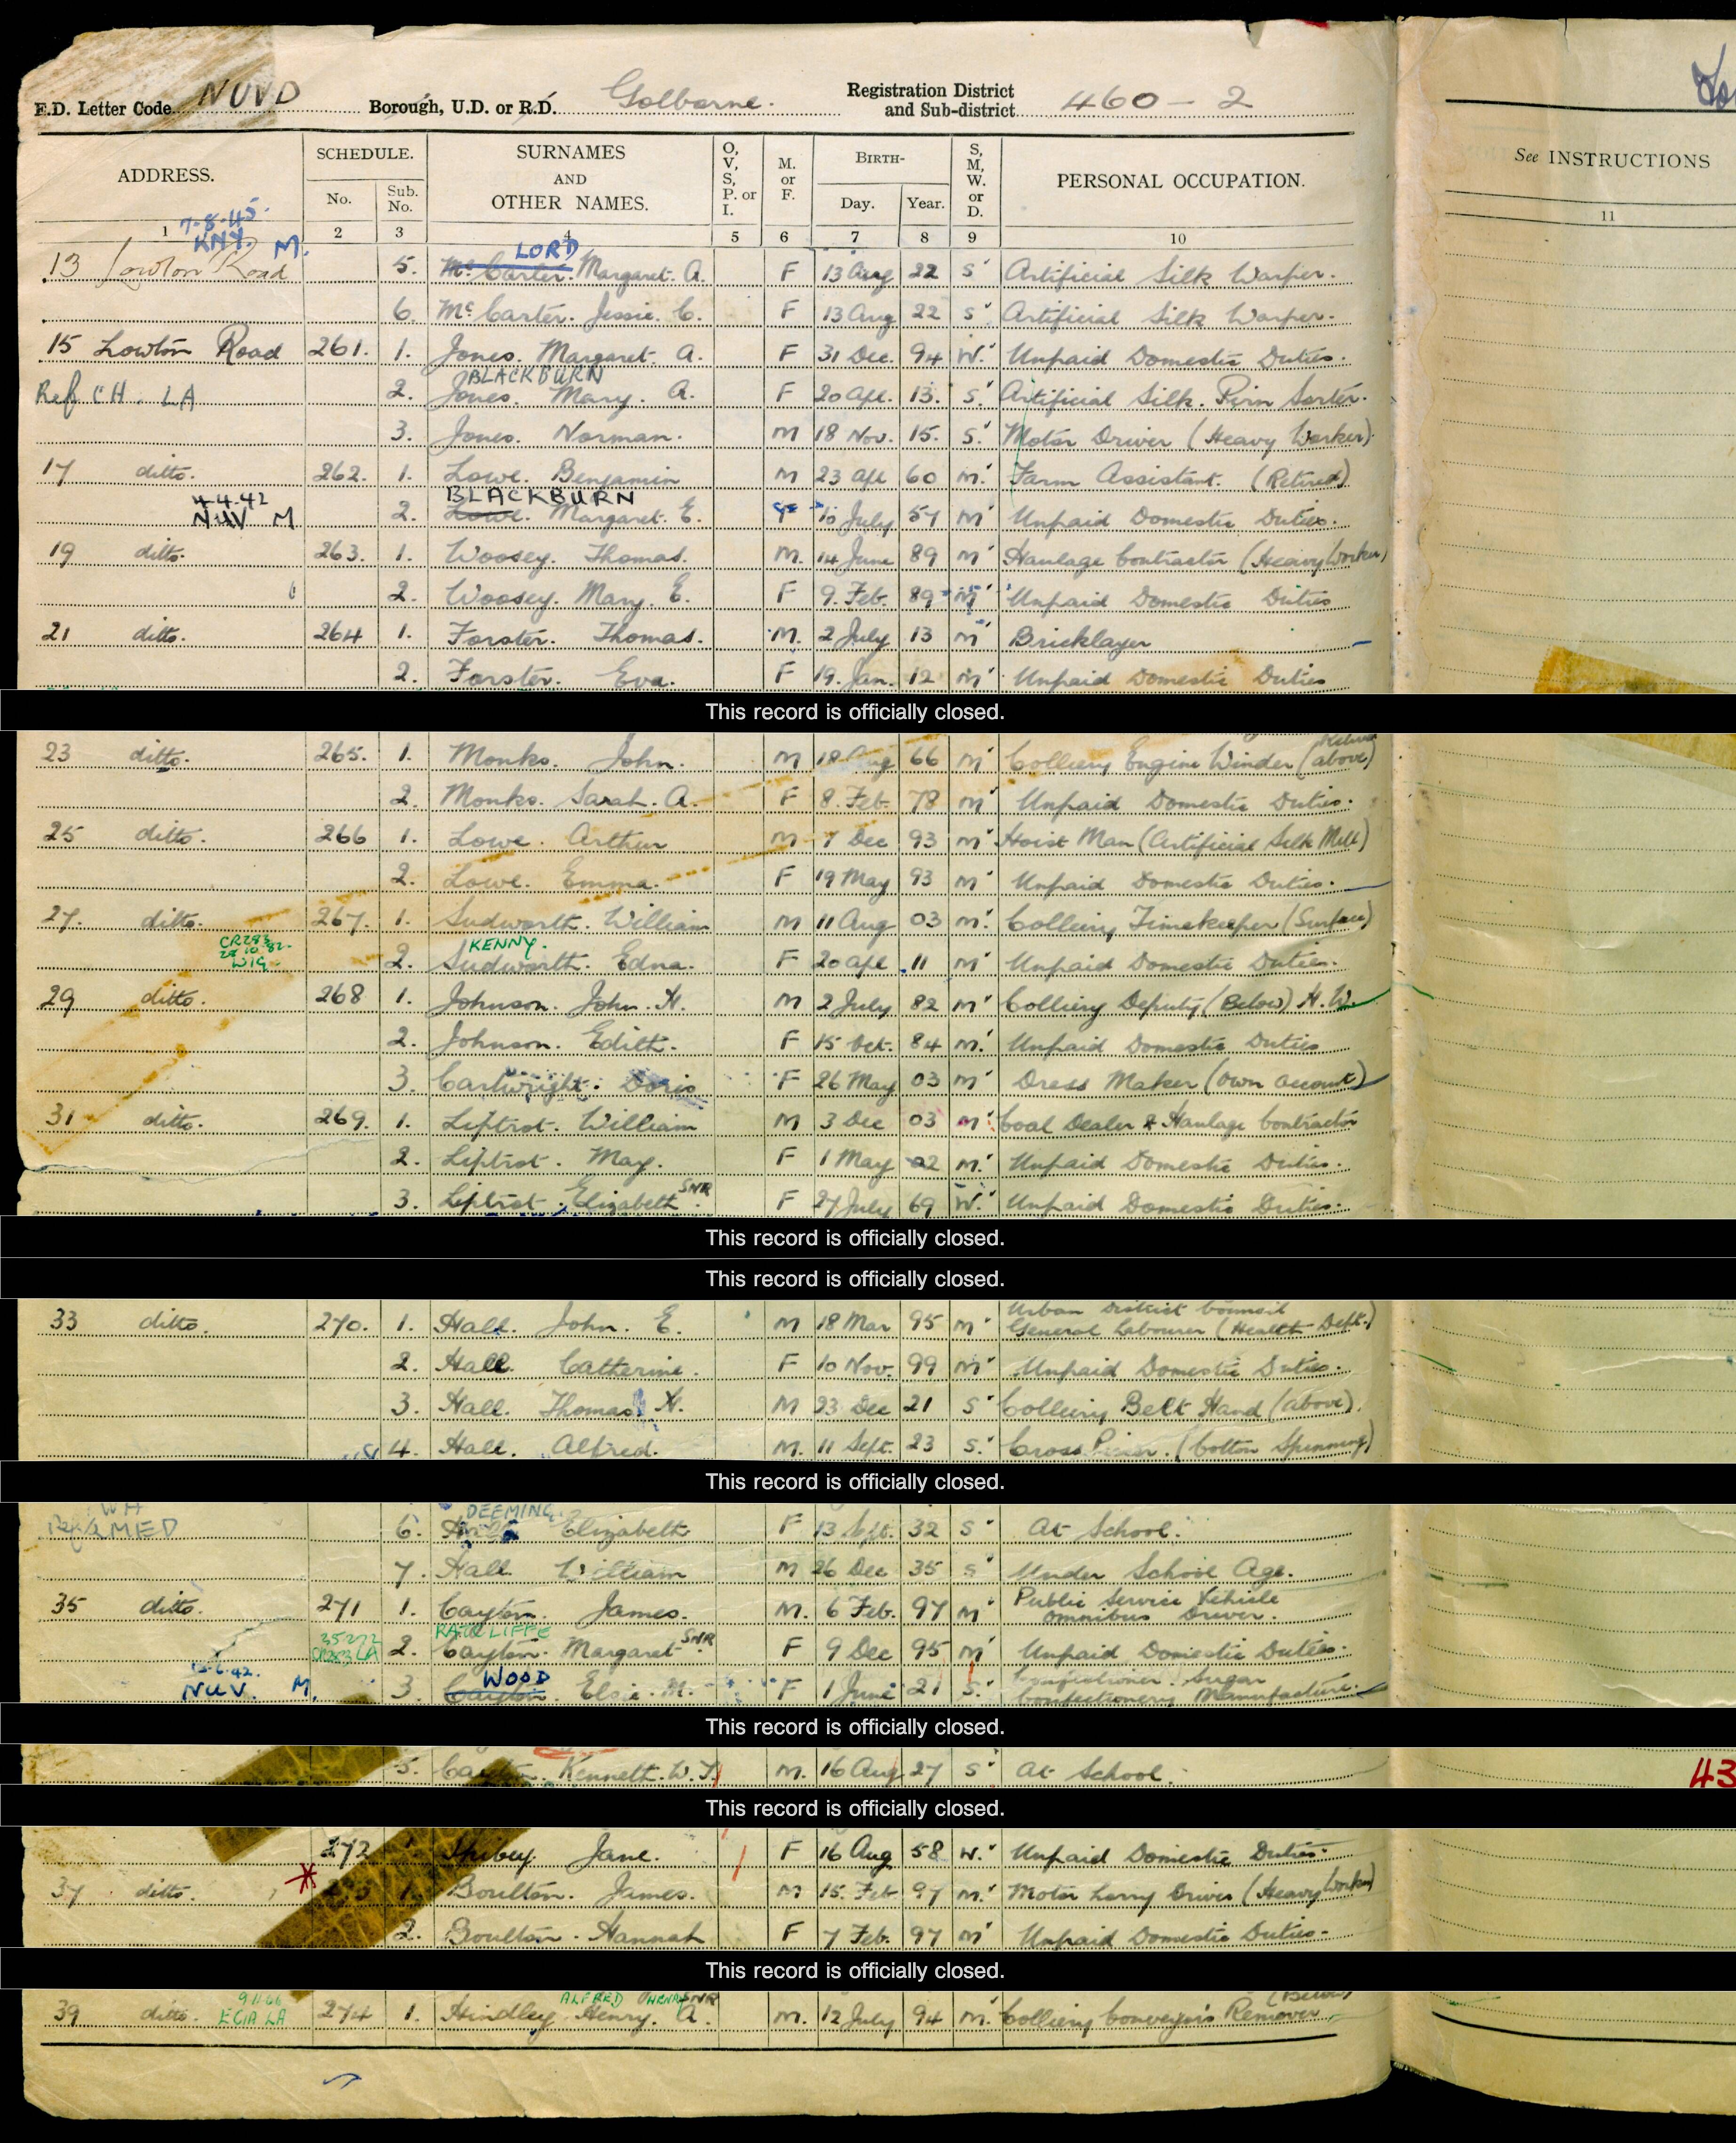 E.D. Letter Code NUVD Borough, U.D. or R.D. Golborne. Registration District and Sub-district 460 - 2
ADDRESS. SCHEDULE. No. Sub. No. SURNAMES AND OTHER NAMES. O, V, S, P. or I. M. or F. BIRTH- Day. Year. S, M, W. or D. PERSONAL OCCUPATION. See INSTRUCTIONS
1 2 3 4 5 6 7 8 9 10 11
7-8-45. KNY. M. LORD
13 Lowton Road 5. McCarter. Margaret. A. F 13 Aug 22 S Artificial Silk Warper.
6. McCarter. Jessie. C. F 13 Aug 22 S Artificial Silk Warper.
15 Lowton Road 261. 1. Jones. Margaret. A. F 31 Dec. 94 W. Unpaid Domestic Duties.
BLACKBURN
Ref CH. LA 2. Jones. Mary. A. F 20 Apl. 13. S. Artificial Silk. Pirn Sorter.
3. Jones. Norman. M 18 Nov. 15. S. Motor Driver (Heavy Worker).
17 ditto. 262. 1. Lowe. Benjamin M 23 Apl 60 M. Farm Assistant. (Retired)
4.4.42 BLACKBURN
NUV M 2. Lowe. Margaret. E. F 10 July 57 M Unpaid Domestic Duties.
19 ditto. 263. 1. Woosey. Thomas. M. 14 June 89 M Haulage Contractor (Heavy Worker)
2. Woosey. Mary. E. F 9. Feb. 89 M Unpaid Domestic Duties
21 ditto. 264 1. Forster. Thomas. M. 2 July 13 M Bricklayer
2. Forster. Eva. F 19. Jan. 12 M Unpaid Domestic Duties
This record is officially closed.
23 ditto. 265. 1. Monks. John. M 18 Aug 66 M Colliery Engine Winder (above)
2. Monks. Sarah. A. F 8. Feb. 78 M Unpaid Domestic Duties.
25 ditto. 266 1. Lowe. Arthur M 7 Dec 93 M Hoist Man (Artificial Silk Mill)
2. Lowe. Emma. F 19 May 93 M Unpaid Domestic Duties.
27. ditto. 267. 1. Sudworth. William M 11 Aug 03 M. Colliery Timekeeper (Surface)
CR283 WIG. KENNY.
2. Sudworth. Edna. F 20 Apl 11 M Unpaid Domestic Duties.
29 ditto. 268 1. Johnson. John. H. M 2 July 82 M Colliery Deputy (Below) H.W.
2. Johnson. Edith. F 15 Oct. 84 M. Unpaid Domestic Duties
3. Cartwright. Doris F 26 May 03 M Dress Maker (own account)
31 ditto. 269. 1. Liptrot. William M 3 Dec 03 M Coal Dealer & Haulage Contractor
2. Liptrot. May. F 1 May 02 M. Unpaid Domestic Duties.
3. Liptrot. Elizabeth SNR F 27 July 69 W. Unpaid Domestic Duties.
This record is officially closed.
This record is officially closed.
33 ditto. 270. 1. Hall. John. E. M 18 Mar 95 M Urban District Council General Labourer (Health Dept.)
2. Hall. Catherine. F 10 Nov. 99 M Unpaid Domestic Duties.
3. Hall. Thomas H. M 23 Dec 21 S Colliery Belt Hand (above).
4. Hall. Alfred. M. 11 Sept. 23 S. Cross Piecer. (Cotton Spinning)
This record is officially closed.
DEEMING
MED 6. Hall Elizabeth F 13 Sept. 32 S At School.
7. Hall William M 26 Dec 35 S Under School Age.
35 ditto. 271 1. Cayton. James. M. 6 Feb. 97 M Public Service Vehicle omnibus Driver.
RATCLIFFE
2. Cayton. Margaret SNR F 9 Dec 95 M Unpaid Domestic Duties.
WOOD
NUV. M. 3. Cayton. Elsie. M. F 1 June 21 S. Confectioner. Sugar Confectionery Manufacture.
This record is officially closed.
5. Cayton. Kenneth. W. J. M. 16 Aug 27 S At School. 43
This record is officially closed.
272 Shibey. Jane. F 16 Aug 58 W. Unpaid Domestic Duties.
37 ditto. 1. Boulton. James. M 15. Feb 97 M. Motor Lorry Driver (Heavy Worker)
2. Boulton. Hannah F 7 Feb. 97 M Unpaid Domestic Duties.
This record is officially closed.
ALFRED HENRY SNR
39 ditto. ECIA LA 274 1. Hindley Henry. A. M. 12 July 94 M. Colliery Conveyors Remover (Below)